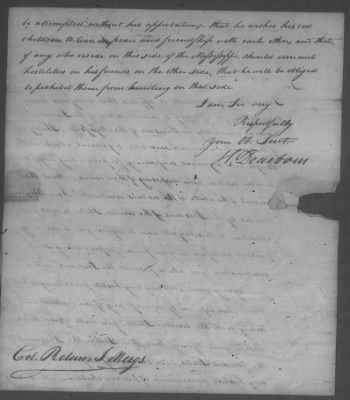 by attempted without his approbation, that he wishes his red
children to live in peace and friendship with each other, and that
if any who reside on this side of the Mississippi, should commit
hostilities on his friends on the other side, that he will be obliged
to prohibit them from hunting on that side
I am Sir very
Respectfully
your Ob. Servt
H. Dearborn
Col. Return J. Meigs